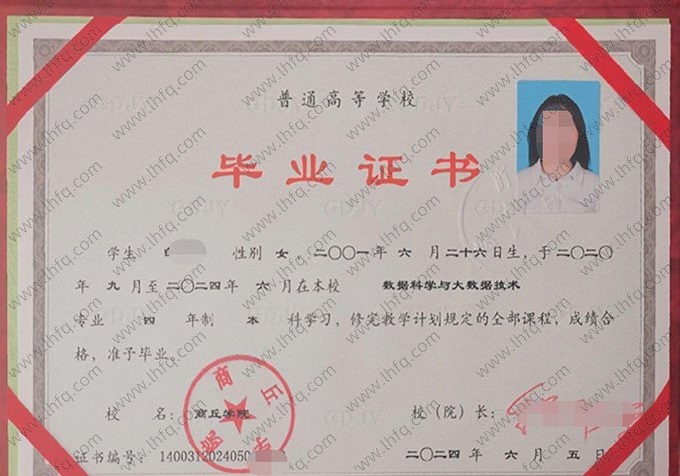 普通高等学校
毕业证书
学生 白 性别 女，二〇〇一年 六 月二十六日生，于二〇二〇
年 九 月至二〇二四年 六 月在本校 数据科学与大数据技术
专业 四 年制 本 科学习，修完教学计划规定的全部课程，成绩合
格，准予毕业。
校 名：商丘学院 校（院）长：
证书编号：1400312024050 二〇二四年 六 月 五 日
www.lhfq.com